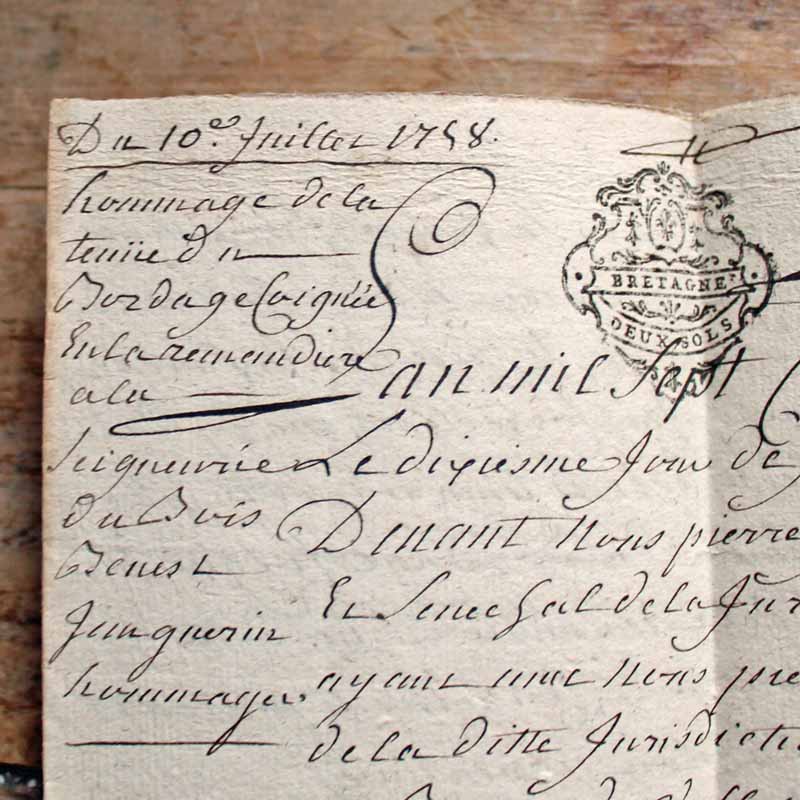 Du 10e. Juillet 1758.
hommage de la
tenüe du
Bordage Coignée
En la remaudiere
a la
Seigneurie
du Bois
Benest
Jan guerin
hommager
BRETAGNE
DEUX SOLS
L'an mil Sept
Le dixiesme Jour de
Devant Nous pierre
En Senechal de la Jur
ayant avec Nous
de la ditte Jurisdicti